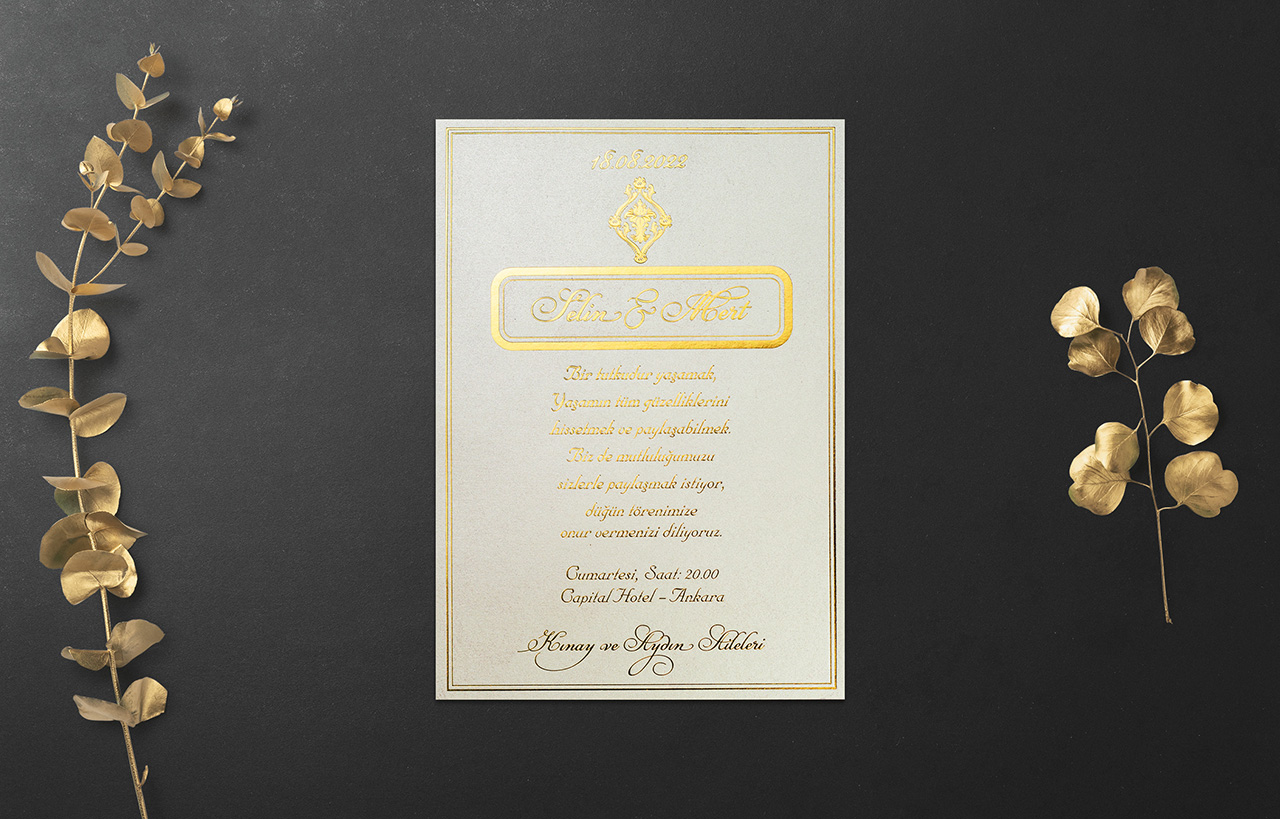 18.08.2022
Selin & Mert
Bir tutkudur yaşamak,
Yaşamın tüm güzelliklerini
hissetmek ve paylaşabilmek.
Biz de mutluluğumuzu
sizlerle paylaşmak istiyor,
düğün törenimize
onur vermenizi diliyoruz.
Cumartesi, Saat: 20.00
Capital Hotel - Ankara
Kınay ve Aydın Aileleri